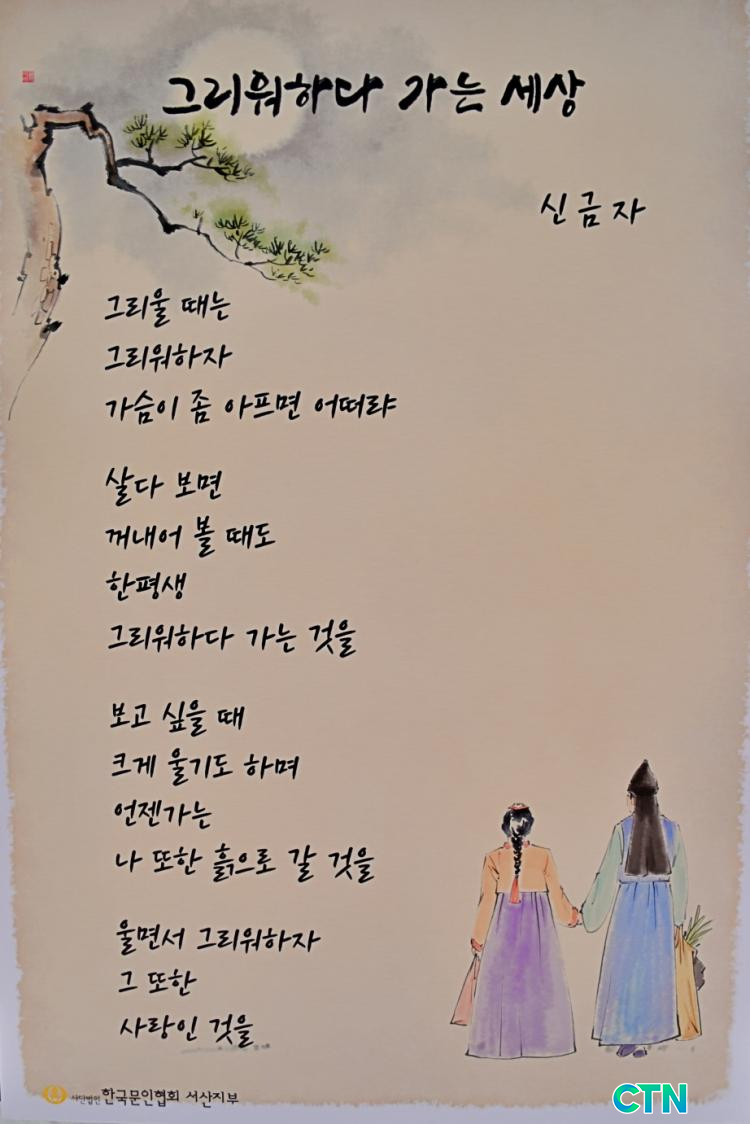 그리워하다 가는 세상
신금자
그리울 때는
그리워하자
가슴이 좀 아프면 어떠랴
살다 보면
꺼내어 볼 때도
한평생
그리워하다 가는 것을
보고 싶을 때
크게 울기도 하며
언젠가는
나 또한 흙으로 갈 것을
울면서 그리워하자
그 또한
사랑인 것을
사단법인 한국문인협회 서산지부
CTN